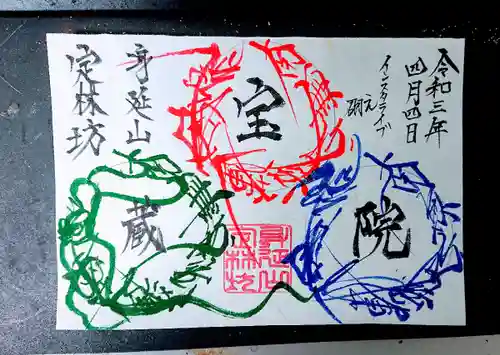 令和三年
四月四日
インスタライブ
宝
蔵
院
身延山
定林坊
身延山
定林坊